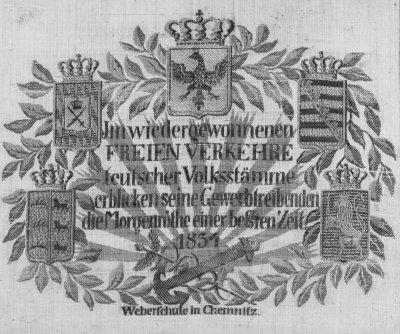 Im wiedergewonnenen
FREIEN VERKEHRE
teutscher Volksstämme
erblicken seine Gewerbtreibenden
die Morgenröthe einer beßren Zeit
1834
Weberschule in Chemnitz.